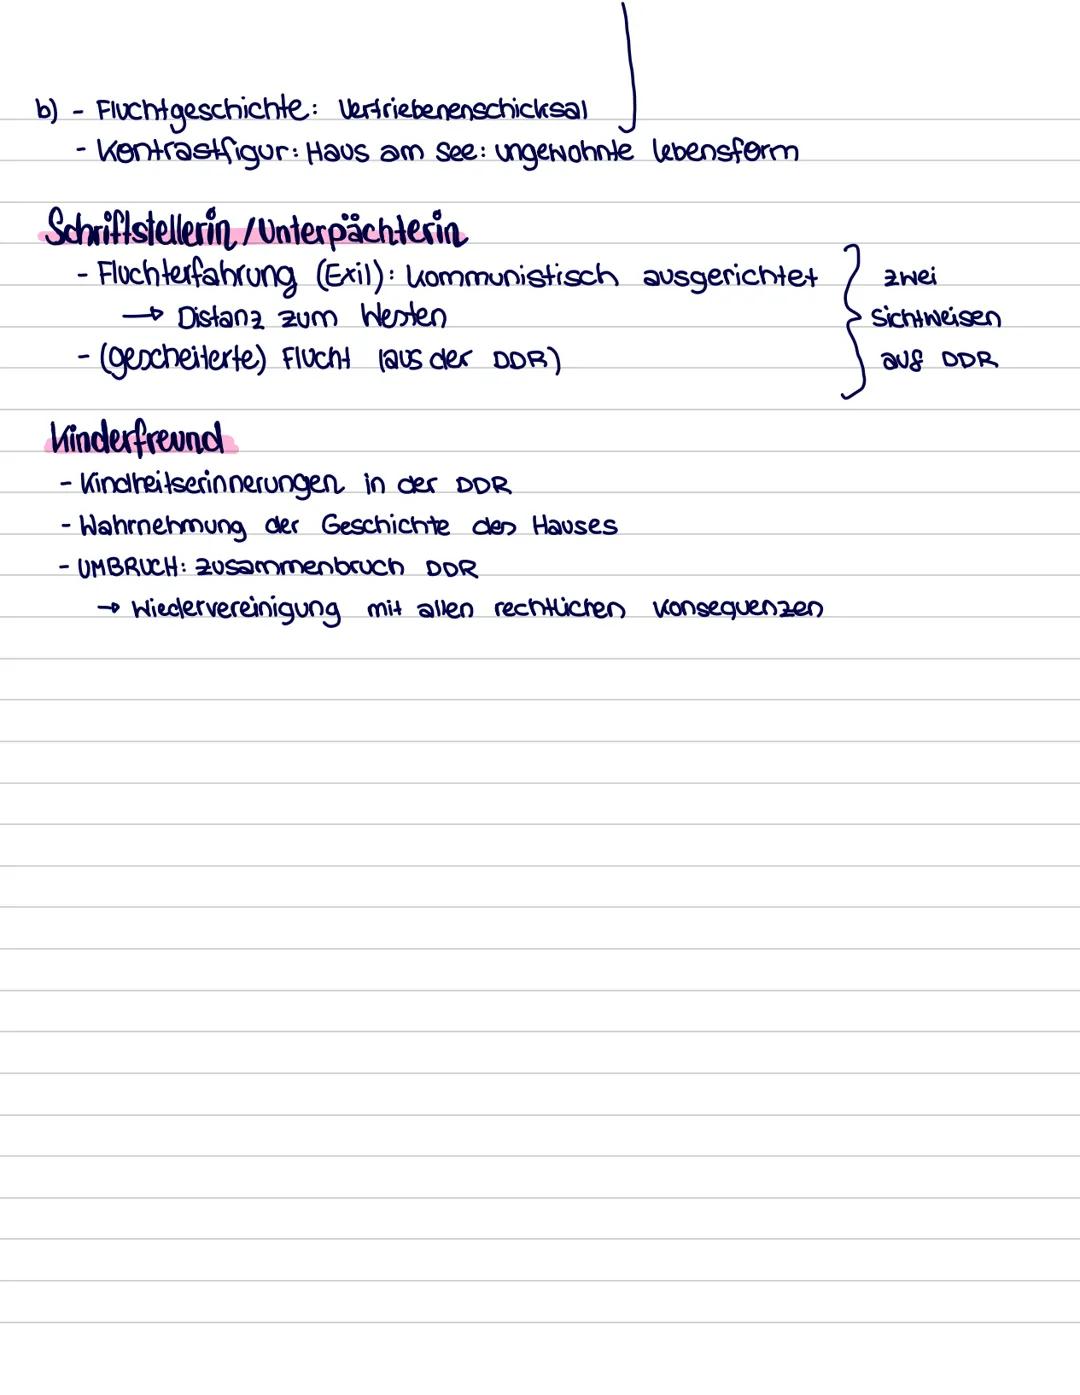 b) - Fluchtgeschichte: Vertriebenenschicksal
- Kontrastfigur: Haus am See: ungewohnte Lebensform
Schriftstellerin / Unterpächterin
- Fluchterfahrung (Exil): kommunistisch ausgerichtet
→ Distanz zum Westen
- (gescheiterte) Flucht (aus der DDR)
zwei
Sichtweisen
auf DDR
Kinderfreund
- Kindheitserinnerungen in der DDR
- Wahrnehmung der Geschichte des Hauses
- UMBRUCH: Zusammenbruch DDR
→ Wiedervereinigung mit allen rechtlichen Konsequenzen